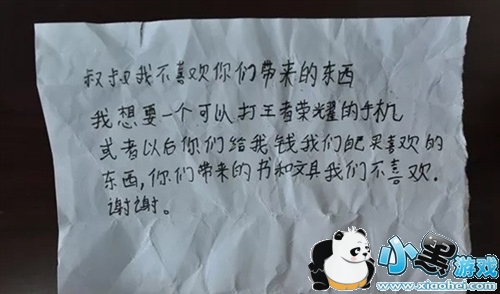 叔叔我不喜欢你们带来的东西
我想要一个可以打王者荣耀的手机
或者以后你们给我钱我们自己买喜欢的
东西,你们带来的书和文具我们不喜欢.
谢谢。
小黑游戏
www.xiaohei.com